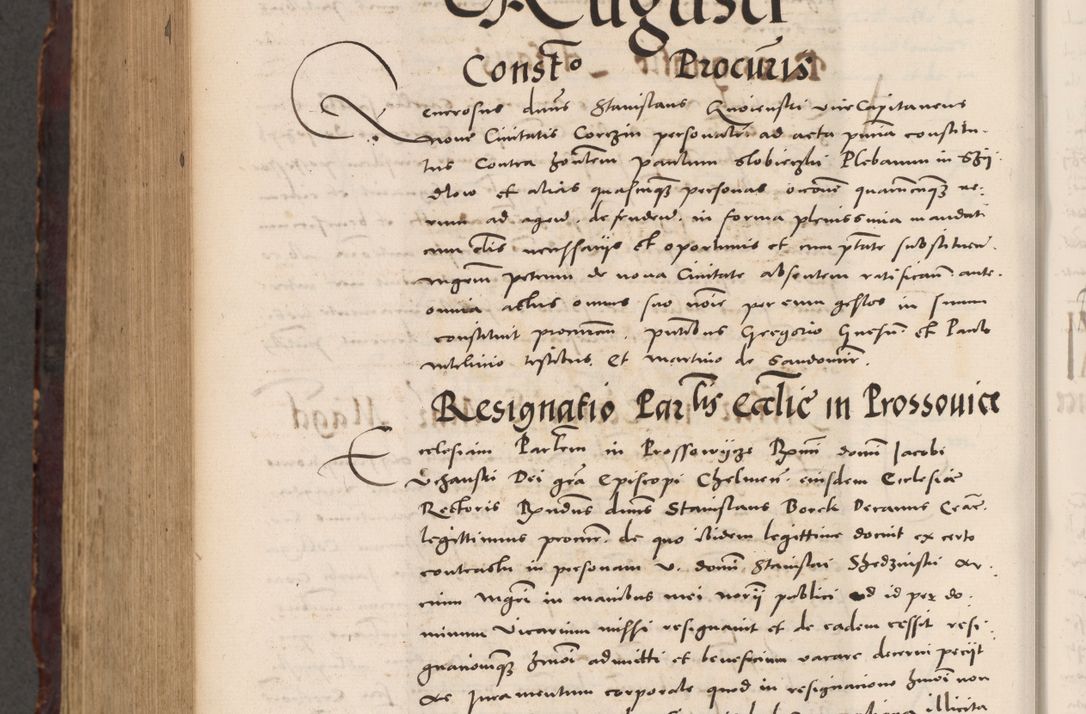 Augusti
Consto Procuris
Generosus dnus Stanislaus Gnoienski vice Capitaneus
nove Civitatis Corczin personaliter ad acta pntia constitu-
tus Contra hontem paulum slobierzki Plebanum in Szy
dlow et alias quascunqz personas occone quarumcunqz re-
rum ad agend. defendend. in forma plenissima mandati
cum clis necessariis et oportunis et cum ptate substituen.
mgrum petrum de nova Civitate absentem ratificans ante
omnia actus omnes suo noie per eum gestos in suum
constituit procurem. pntibus Gregorio et Paulo
testibus. Et martino de Sandomir.
Resignatio Parlis Ecclie in Prossovice
Ecclesiam Parlem in Prossowycze Rmi domi Jacobi
Uchanski Dei gra Episcopi Chelmen. eiusdem Ecclesiae
Rectoris Rndus dnus Stanislaus Borek Decanus Crac.
legittimus procur. de quo ibidem legittime docuit ex certo
contractu in personam v. domi Stanislai Szedzinski Ar-
cium Mgri in manibus mei norii publici ad id per do-
minum Vicarium missi resignavit et de eadem cessit resi-
gnationemqz hmoi admitti et beneficium vacare decerni peciit
Ac Juramentum corporale quod in resignatione hmoi non
illicita